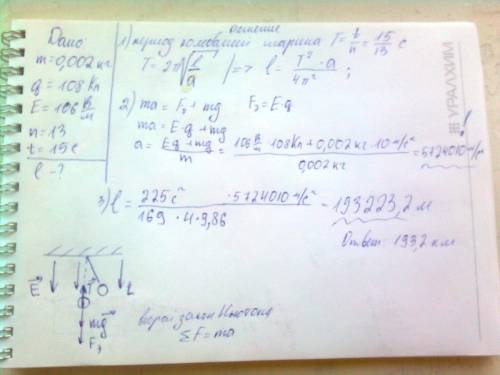 Решение
Дано
m=0,002 кг
q = 108 Кл
E = 106 В/м
n = 13
t = 15 с
l - ?
1) период колебаний шарика T = t/n = 15/13 с
T = 2π√(l/a) => l = T²·a/4π² ;
2) ma = Fэ + mg Fэ = E·q
ma = E·q + mg
a = (Eq + mg)/m = (106 В/м · 108 Кл + 0,002 кг · 10 м/с²)/0,002 кг = 5724010 м/с²
!
3) l = (225 с² · 5724010 м/с²)/(169 · 4 · 9,86) = 193223,2 м
Ответ: 193,2 км
E
mg
Fэ
второй закон Ньютона
ΣF = ma
УРАЛХИМ